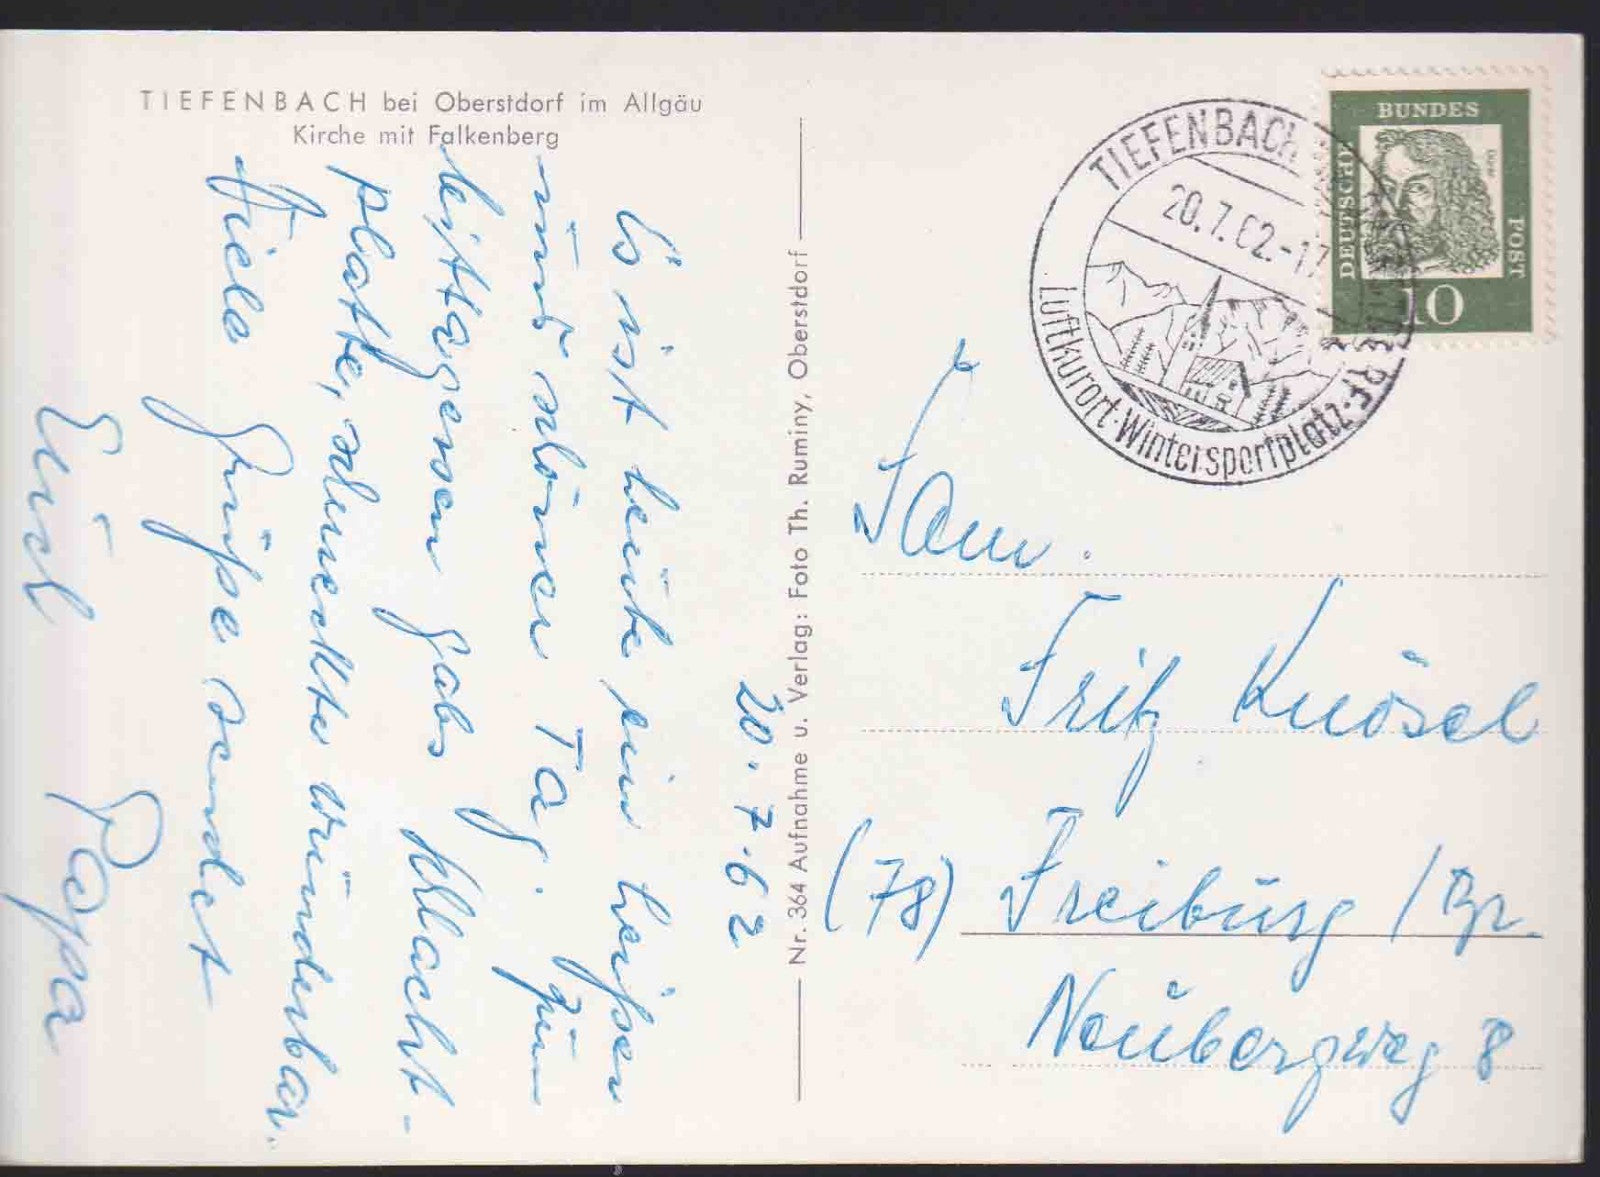 TIEFENBACH bei Oberstdorf im Allgäu
Kirche mit Falkenberg
20.7.62
Es ist heute ein heißer
und schöner Tag. Zum
Mittagessen gabs Schlacht-
platte, schmeckte wunderbar.
Viele Grüße sendet
Euch Papa
Nr. 364 Aufnahme u. Verlag: Foto Th. Ruminy, Oberstdorf
TIEFENBACH
20.7.62.-17
Luftkurort·Wintersportplatz
DEUTSCHE
BUNDES
POST
10
Fam.
Fritz Knösel
(78) Freiburg /Br.
Neubergweg 8